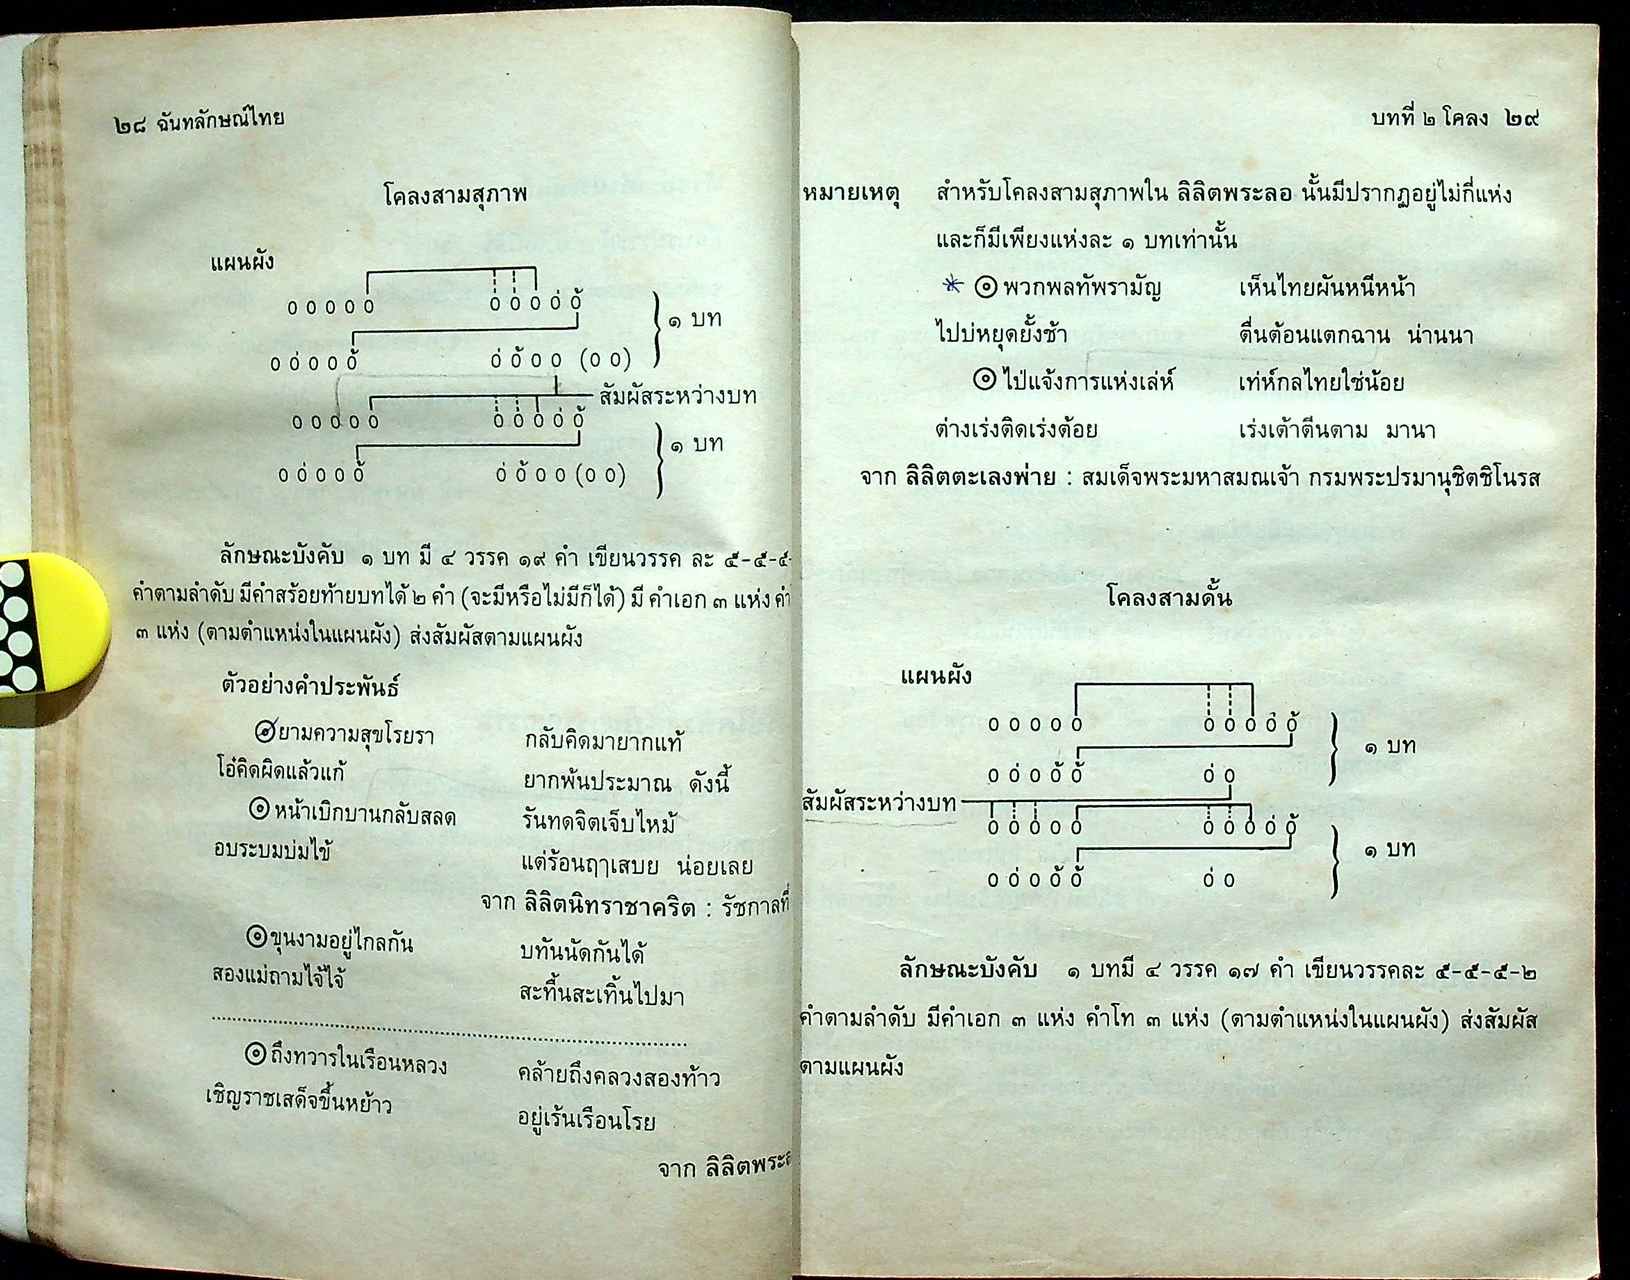 ๒๘ ฉันทลักษณ์ไทย
โคลงสามสุภาพ
แผนผัง
๐ ๐ ๐ ๐ ๐ ๐ ๐ ๐ ๐่ ๐้
๑ บท
๐ ๐่ ๐ ๐ ๐้ ๐่ ๐้ ๐ ๐ (๐ ๐)
สัมผัสระหว่างบท
๐ ๐ ๐ ๐ ๐ ๐ ๐ ๐ ๐่ ๐้
๑ บท
๐ ๐่ ๐ ๐ ๐้ ๐่ ๐้ ๐ ๐ (๐ ๐)
ลักษณะบังคับ ๑ บท มี ๔ วรรค ๑๙ คำ เขียนวรรค ละ ๕-๕-๕-
คำตามลำดับ มีคำสร้อยท้ายบทได้ ๒ คำ (จะมีหรือไม่มีก็ได้) มี คำเอก ๓ แห่ง
๓ แห่ง (ตามตำแหน่งในแผนผัง) ส่งสัมผัสตามแผนผัง
ตัวอย่างคำประพันธ์
๏ ยามความสุขโรยรา กลับคิดมายากแท้
โอ๋คิดผิดแล้วแก้ ยากพ้นประมาณ ดังนี้
๏ หน้าเบิกบานกลับสลด รันทดจิตเจ็บไหม้
อบระบมบ่มไข้ แต่ร้อนฤๅเสบย น่อยเลย
จาก ลิลิตนิทราชาคริต : รัชกาลที่
๏ ขุนงามอยู่ไกลกัน บทันนัดกันได้
สองแม่ถามไจ้ไจ้ สะทื้นสะเทิ้นไปมา
........................................................................
๏ ถึงทวารในเรือนหลวง คล้ายถึงคลวงสองท้าว
เชิญราชเสด็จขึ้นหย้าว อยู่เร้นเรือนโรย
จาก ลิลิตพระล
บทที่ ๒ โคลง ๒๙
หมายเหตุ สำหรับโคลงสามสุภาพใน ลิลิตพระลอ นั้นมีปรากฏอยู่ไม่กี่แห่ง
และก็มีเพียงแห่งละ ๑ บทเท่านั้น
* ๏ พวกพลทัพรามัญ เห็นไทยผันหนีหน้า
ไปบ่หยุดยั้งช้า ตื่นต้อนแตกฉาน น่านนา
๏ ไป่แจ้งการแห่งเล่ห์ เท่ห์กลไทยใช่น้อย
ต่างเร่งติดเร่งต้อย เร่งเต้าตีนตาม มานา
จาก ลิลิตตะเลงพ่าย : สมเด็จพระมหาสมณเจ้า กรมพระปรมานุชิตชิโนรส
โคลงสามดั้น
แผนผัง
๐ ๐ ๐ ๐ ๐ ๐ ๐ ๐ ๐่ ๐้
๑ บท
๐ ๐่ ๐ ๐้ ๐้ ๐่ ๐
สัมผัสระหว่างบท
๐ ๐ ๐ ๐ ๐ ๐ ๐ ๐ ๐่ ๐้
๑ บท
๐ ๐่ ๐ ๐้ ๐้ ๐่ ๐
ลักษณะบังคับ ๑ บทมี ๔ วรรค ๑๗ คำ เขียนวรรคละ ๕-๕-๕-๒
คำตามลำดับ มีคำเอก ๓ แห่ง คำโท ๓ แห่ง (ตามตำแหน่งในแผนผัง) ส่งสัมผัส
ตามแผนผัง